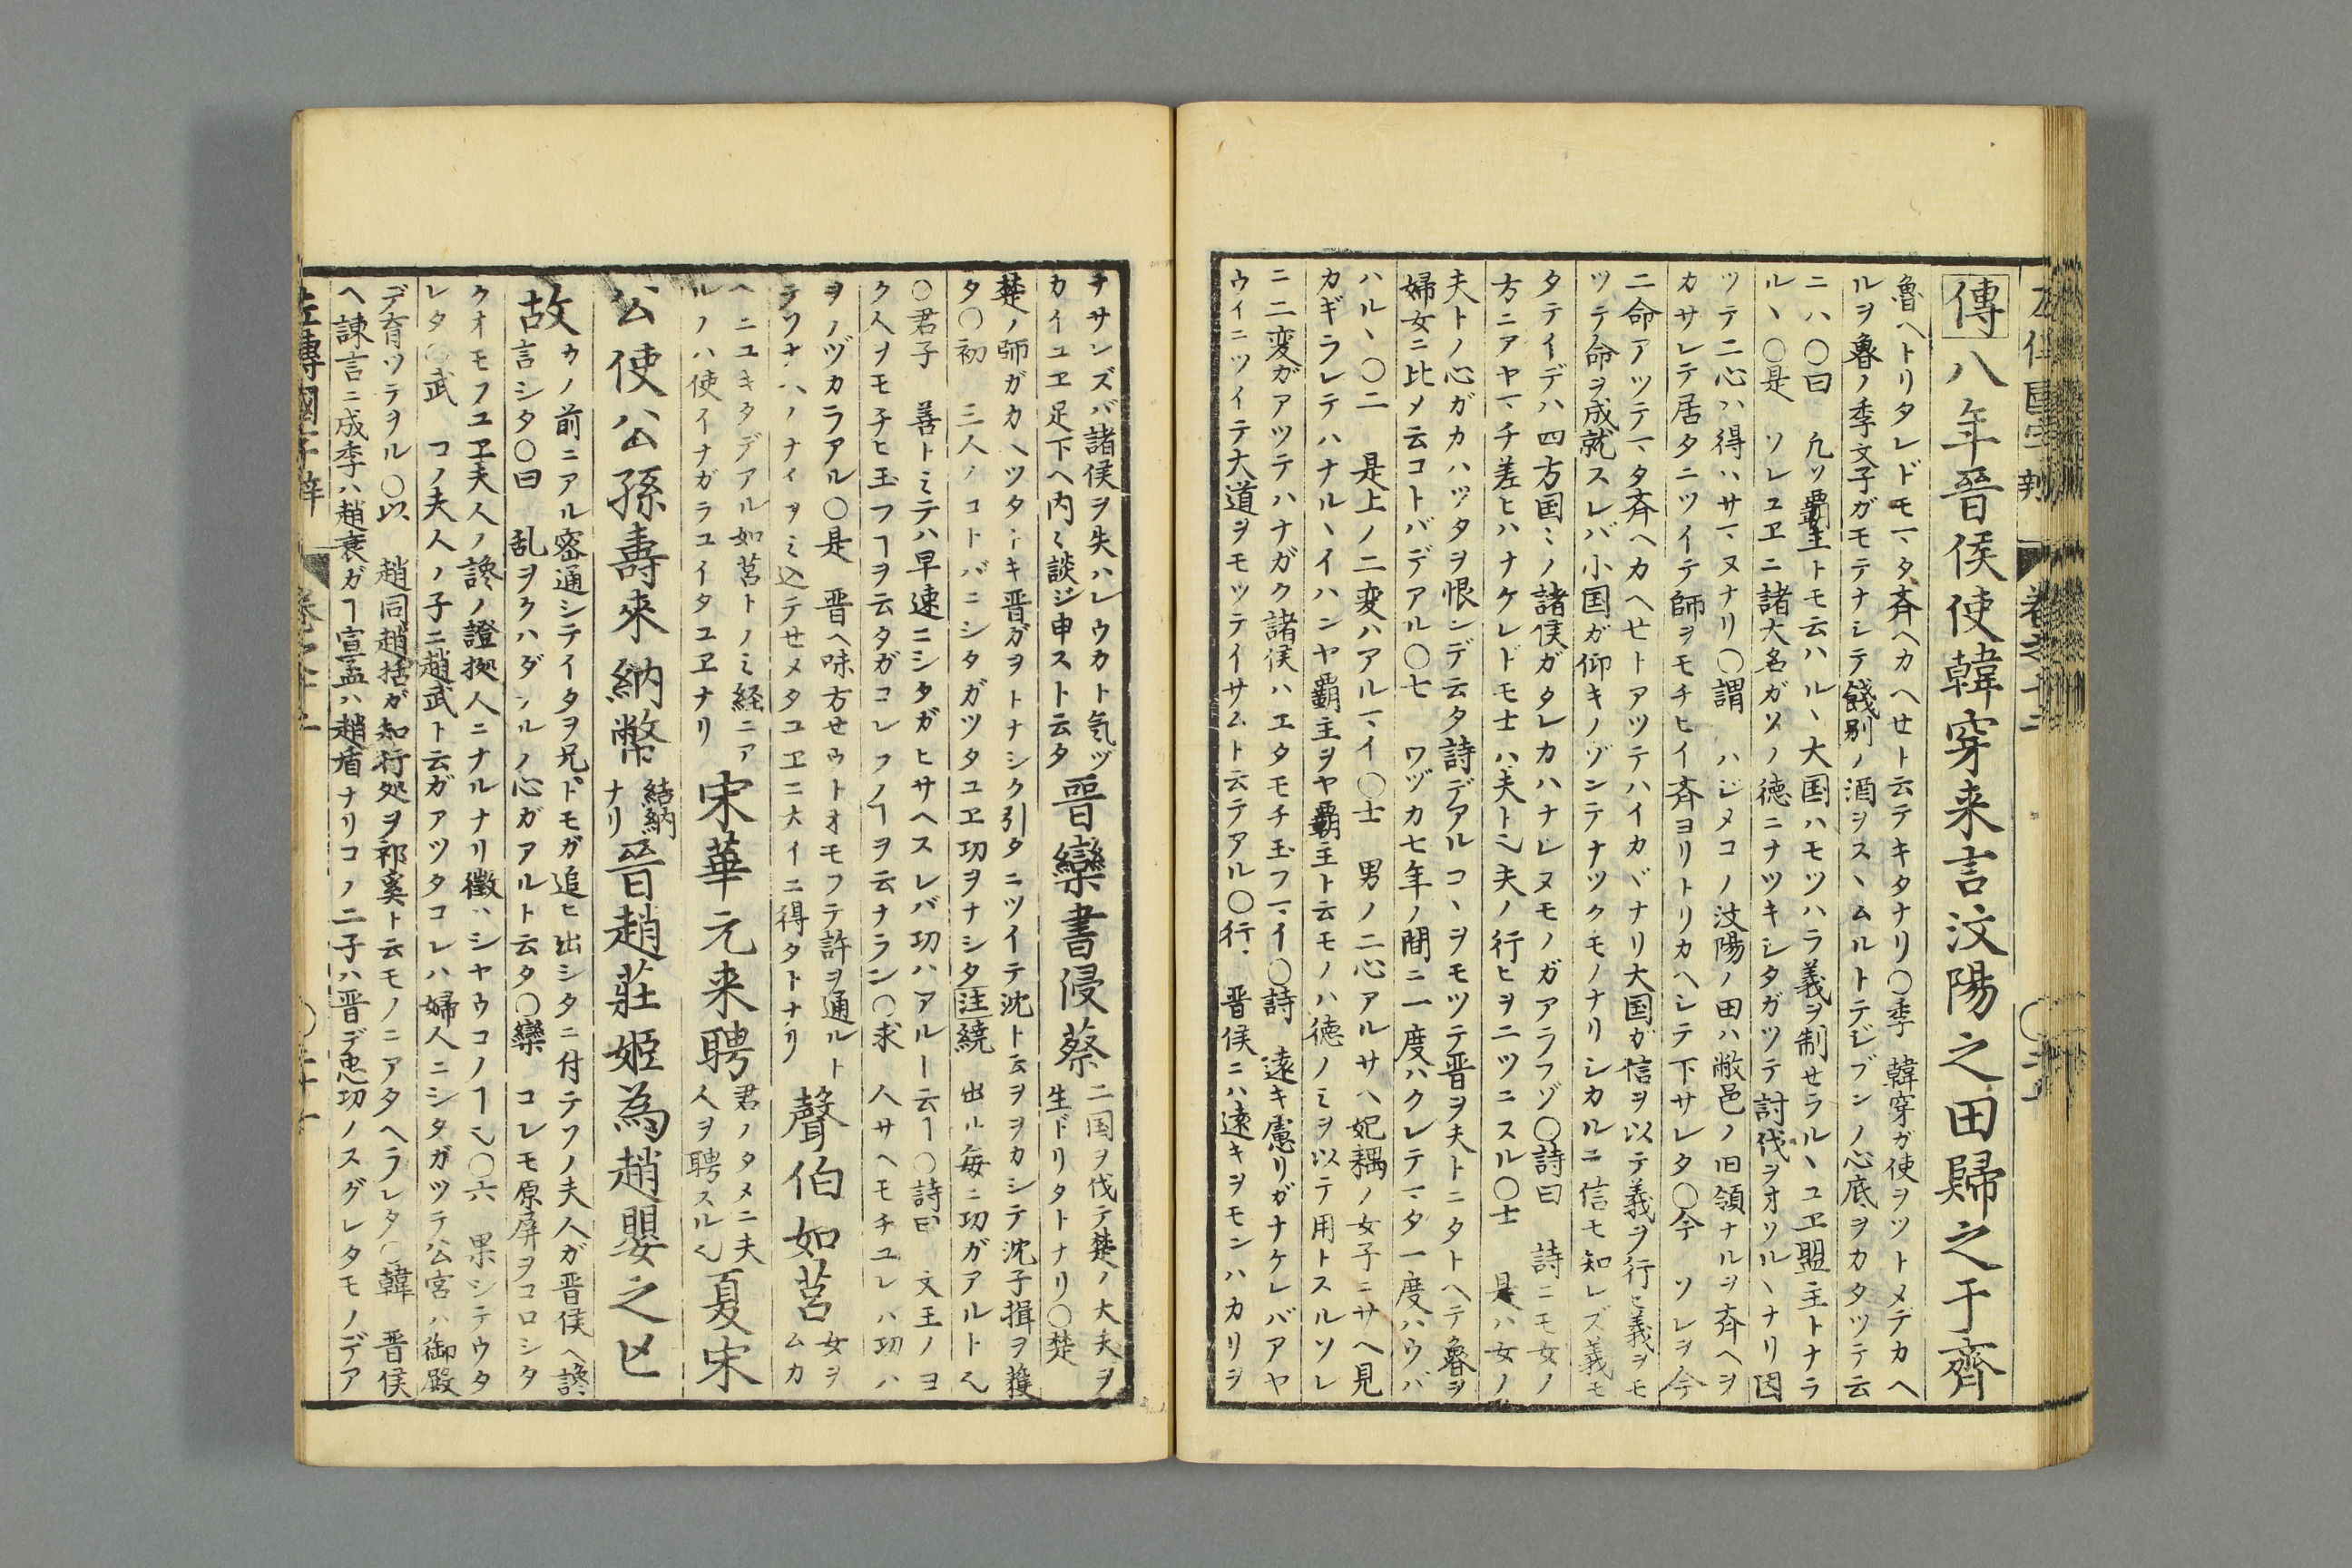 傳八年晉侯使韓穿来言汶陽之田歸之于齊
魯ヘトリタレドモマタ斉ヘカヘセト云テキタナリ〇季 韓穿ガ使ヲツトメテカヘ
ルヲ魯ノ季文子ガモテナシテ餞別ノ酒ヲスヽムルトテジブンノ心底ヲカタツテ云
ニハ〇曰 凢ソ覇主トモ云ハルヽ大国ハモツハラ義ヲ制セラルヽユヱ盟主トナラ
ルヽ〇是 ソレユヱニ諸大名ガソノ徳ニナツキシタガツテ討伐ヲオソルヽナリ因
ツテ二心ハ得ハサマヌナリ〇謂 ハジメコノ汶陽ノ田ハ敝邑ノ旧領ナルヲ斉ヘヲ
カサレテ居タニツイテ師ヲモチヒイ斉ヨリトリカヘシテ下サレタ〇今 ソレヲ今
ニ命アツテマタ斉ヘカヘセトアツテハイカヾナリ大国ガ信ヲ以テ義ヲ行ヒ義ヲモ
ツテ命ヲ成就スレバ小国ガ仰キノゾンテナツクモノナリシカルニ信モ知レズ義モ
タテイデハ四方国〻ノ諸侯ガタレカハナレヌモノガアラフゾ〇詩曰 詩ニモ女ノ
方ニアヤマチ差ヒハナケレドモ士ハ夫ト也夫ノ行ヒヲ二ツニスル〇士 是ハ女ノ
夫トノ心ガカハツタヲ恨ンデ云タ詩デアルコヽヲモツテ晋ヲ夫トニタトヘテ魯ヲ
婦女ニ比メ云コトバデアル〇七 ワヅカ七年ノ間ニ一度ハクレテマタ一度ハウバ
ハルヽ〇二 是上ノ二変ハアルマイ〇士 男ノ二心アルサヘ妃耦ノ女子ニサヘ見
カギラレテハナルヽイハンヤ覇主ヲヤ覇主ト云モノハ徳ノミヲ以テ用トスルソレ
ニ二変ガアツテハナガク諸侯ハエタモチ玉フマイ〇詩 遠キ慮リガナケレバアヤ
ウイニツイテ大道ヲモツテイサムト云テアル〇行 晋侯ニハ遠キヲモンハカリヲ
ナサンズバ諸侯ヲ失ハレウカト気ヅ
カイユヱ足下ヘ内〻談ジ申スト云タ
晉欒書侵蔡
二国ヲ伐テ楚ノ大夫ヲ
生ドリタトナリ〇楚
楚ノ師ガカヘツタトキ晋ガヲトナシク引タニツイテ沈ト云ヲヲカシテ沈子揖ヲ獲
タ〇初 三人ノコトバニシタガツタユヱ功ヲナシタ注繞 出ル毎ニ功ガアルト也
〇君子 善トミテハ早速ニシタガヒサヘスレバ功ハアルト云ヿ〇詩曰 文王ノヨ
ク人ヲモチヒ玉フヿヲ云タガコレラノヿヲ云ナラン〇求 人サヘモチユレハ功ハ
ヲノヅカラアル〇是 晋ヘ味方セウトオモフテ許ヲ通ルト
テソナハノナイヲミ込テセメタユヱニ大イニ得タトナリ
聲伯如莒
女ヲ
ムカ
ヘニユキタデアル如莒トノミ経ニア
ルノハ使イナガラユイタユヱナリ
宋華元来聘
君ノタメニ夫
人ヲ聘スル也
夏宋
公使公孫壽来納幣
結納
ナリ
晉趙莊姬為趙嬰之亡
故
カノ前ニアル密通シテイタヲ兄ドモガ追ヒ出シタニ付テソノ夫人ガ晋侯ヘ讒
言シタ〇曰 乱ヲクハダツルノ心ガアルト云タ〇欒 コレモ原屏ヲコロシタ
クオモフユヱ夫人ノ讒ノ證拠人ニナルナリ徵ハシヤウコノヿ也〇六 果シテウタ
レタ〇武 コノ夫人ノ子ニ趙武ト云ガアツタコレハ婦人ニシタガツテ公宮ハ御殿
デ育ツテヲル〇以 趙同趙括ガ知行処ヲ祁奚ト云モノニアタヘラレタ〇韓 晋侯
ヘ諌言ニ成季ハ趙衰ガヿ宣孟ハ趙盾ナリコノ二子ハ晋デ忠功ノスグレタモノデア